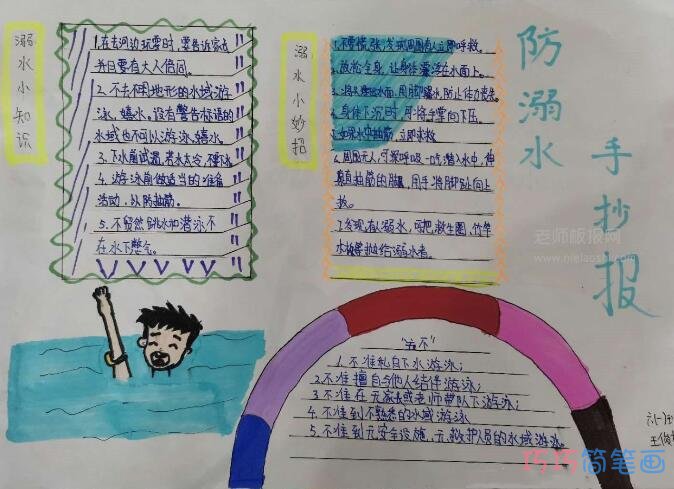 防溺水
手抄报
溺水小知识
1.在去河边玩耍时，要告诉家长
并且要有大人陪同。
2.不去不明地形的水域游
泳、嬉水。没有警告标语的
水域也不可以游泳、嬉水。
3.下水前试温，若水太冷，不要下水
4.游泳前做适当的准备
活动，以防抽筋。
5.不贸然跳水和潜泳不
在水下憋气。
溺水小妙招
1.不要慌张，发现周围有人立即呼救。
2.放松全身，让身体漂浮在水面上。
3.将头部浮出水面，用脚踢水，防止体力丧失。
4.身体下沉时，可将手掌向下压。
5.如果水中抽筋，立即求救
6.周围无人，可深呼吸一口潜入水中，伸
直抽筋的腿，用手将脚趾向上
扳。
7.发现有人溺水，可把救生圈，竹竿
木板等抛给溺水者。
"六不"
1.不准私自下水游泳；
2.不准擅自与他人结伴游泳；
3.不准在无家长或老师带队下游泳；
4.不准到不熟悉的水域游泳
5.不准到无安全设施、无救护人员的水域游泳。
老师板报网
巧巧简笔画